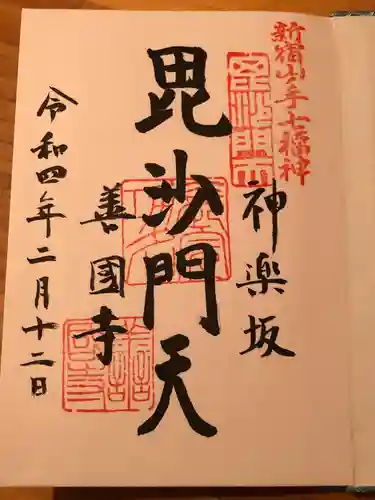 新宿山手七福神
神楽坂
毘沙門天
善國寺
令和四年二月十二日